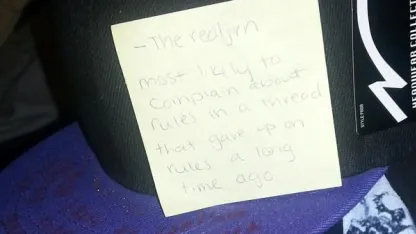 - The realjrn
most likely to
complain about
rules in a thread
that gave up on
rules a long
time ago